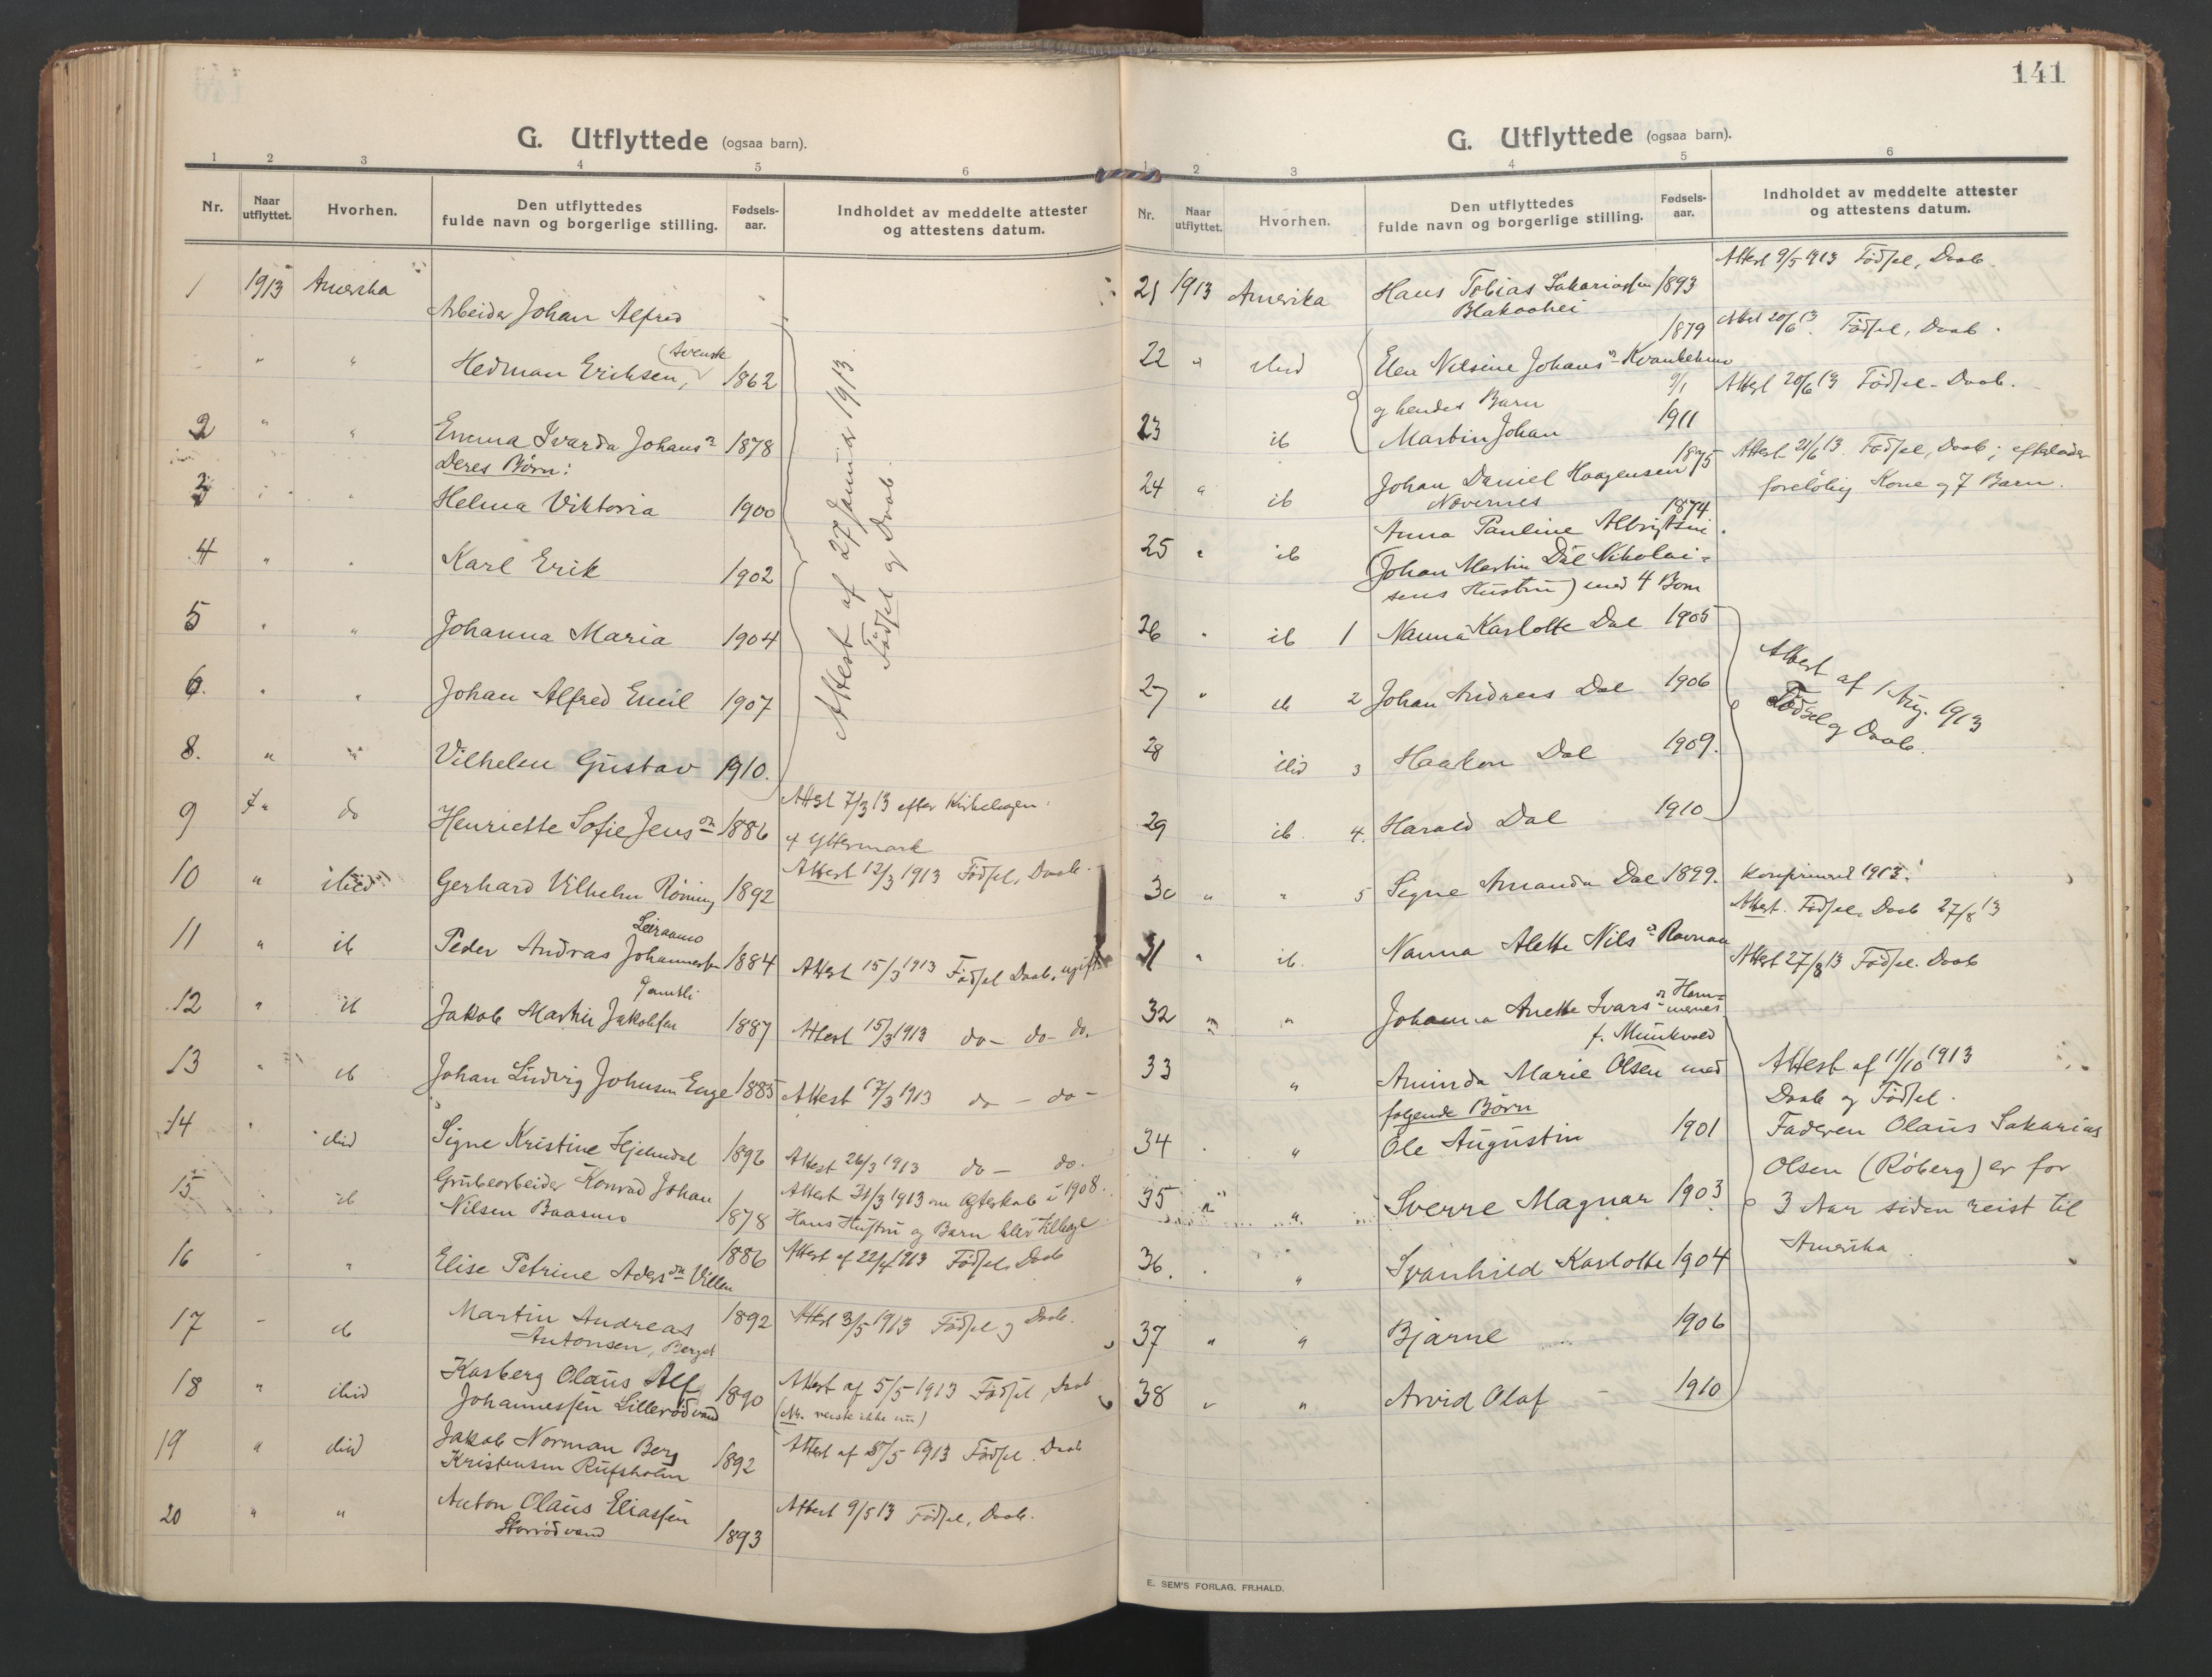 G. Utflyttede (ogsaa barn).
1 2 3 4 5 6
Nr. Naar utflyttet. Hvorhen. Den utflyttedes fulde navn og borgerlige stilling. Fødsels-aar. Indholdet av meddelte attester og attestens datum.
1 1913 Amerika
Arbeider Johan Alfred
" " Hedman Eriksen, (svensk) 1862
Attest af 27 Januar 1913.
Födsel og Daab.
2 " " Emma Ivarda Johansdr 1878
Deres Börn:
3 Helma Viktoria 1900
4 " " Karl Erik 1902
5 " " Johanna Maria 1904
6. " " Johan Alfred Emil 1907
8. " " Vilhelm Gustav 1910.
9 do Henriette Sofie Jensdr 1886 Attest 7/3 13 efter
f Yttermark
10 " ibid Gerhard Vilhelm Röning 1892 Attest 12/3 1913 Födsel, Daab.
Leiraamo
11 " ib Peder Andras Johannessen 1884 Attest 15/3 1913 Födsel Daab, ugift
12 " ib Jakob Martin Jakobsen 1887 Attest 15/3 1913 do - do - do.
13 " ib Johan Ludvig Johnsen Enge 1885 Attest 17/3 1913 do - do -
14 " ibid Signe Kristine Hjelmdal 1892 Attest 26/3 1913 do - do.
15 ib Grubearbeider Konrad Johan
Nilsen Baasmo 1878 Attest 31/3 1913 om Ægteskab i 1908.
Hans Hustru og Barn blev tilbage
16 - " Elise Petrine Villen 1886 Attest af 22/4 1913 Födsel, Daab
17 - ib Martin Andreas 1892 Attest 3/5 1913 Födsel og Daab.
Antonsen, Berget
18 " ibid Kasberg Olaus Alf
Johannessen Lilleródvand 1890 Attest af 5/5 1913 Födsel, Daab
(Nb. reiste ikke )
19 " ibid Jakob Norman Berg
Kristensen Rufsholm 1892 Attest af 5/5 1913 Födsel. Daab
20 " " Anton Olaus Eliassen
1893 Attest 9/5 13 Födsel, Daab.
141
G. Utflyttede (ogsaa barn).
1 2 3 4 5 6
Nr. Naar utflyttet. Hvorhen. Den utflyttedes fulde navn og borgerlige stilling. Fødsels-aar. Indholdet av meddelte attester og attestens datum.
21 1913 Amerika Hans Tobias Sakariassen 1893 Attest 9/5 1913 Födsel, Daab.
22 " ibid Elen Nilsine Johansdr 1879 Attest 20/6 13. Födsel, Daab.
og hendes Barn 9/1
23 ib Martin Johan 1911 Attest 20/6 13 Födsel - Daab.
24 " ib Johan Daniel Haagensen 1875 Attest 21/6 13. Födsel, Daab; efterlader
Nævernes forelöbig Kone og 7 Barn.
25 " ib Anna Pauline 1874
(Johan Martin Dal Nikolai-
sens Hustru) med 4 Born
26 " ib 1 Nanna Karlotte Dal 1905
27 " ib 2 Johan Andreas Dal 1906
Attest af 1 Aug. 1913
Födsel og Daab.
28 ibid 3 Haakon Dal 1909.
29 ib. 4. Harald Dal 1910
30 " " 5 Signe Amanda Dal 1899. Konfirmeret 1913.
Attest. Födsel, Daab 27/8 13
31 " ib. Nanna Alette Nilsdr Ravnaa Attest 27/8 13 Födsel. Daab
32 " " Johanna Anette Ivarsdr Ham-
f. Munkvold
33 " Aminda Marie Olsen med
folgende Börn
Attest af 11/10 1913
Daab og Födsel.
34 . " Ole Augustin 1901 Faderen Olaus Sakarias
35 " " Sverre Magnar 1903 Olsen (Röberg) er for
3 Aar siden reist til
Amerika.
36. . " Svanhild Karlotte 1904
37 " " Bjarne 1906
38 " " Arvid Olaf 1910
E. SEM'S FORLAG, FR.HALD.